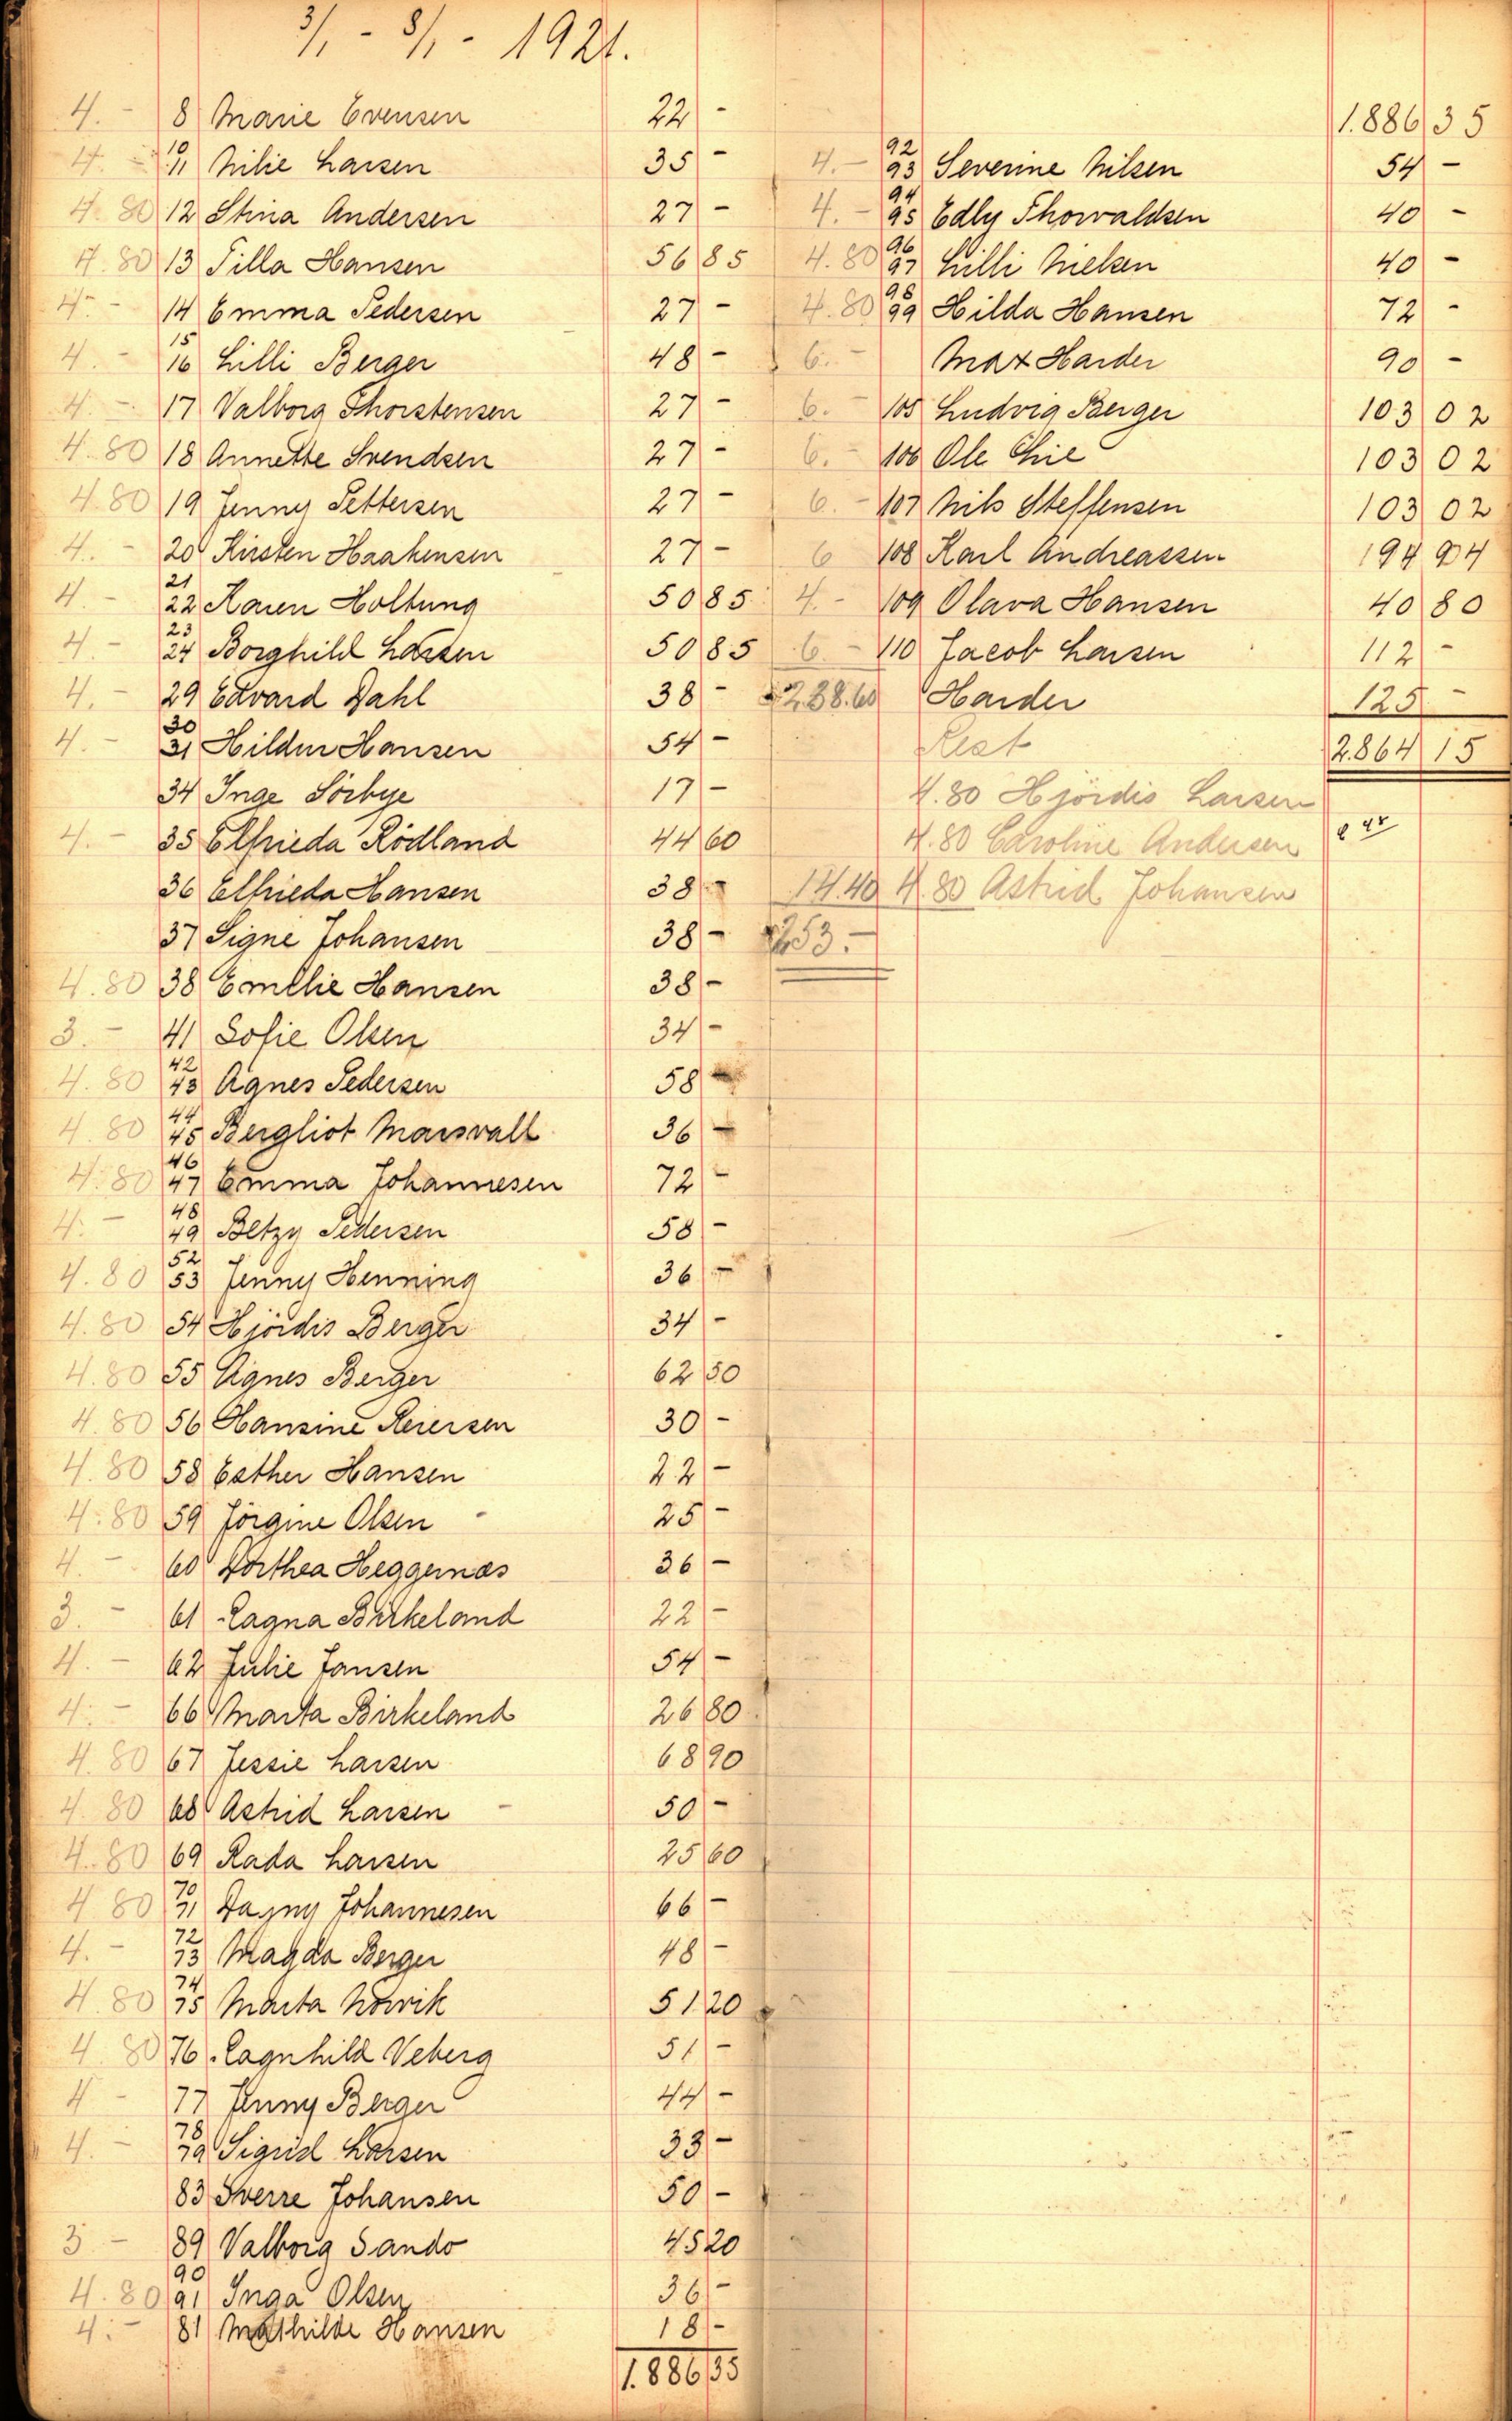 3/1 - 8/1 - 1921.
4. - 8 Marie Evensen 22 -
4. - 10 11 Milie Larsen 35 -
4.80 12 Stina Andersen 27 -
4.80 13 Tilla Hansen 56 85
4. - 14 Emma Pedersen 27 -
4. - 15 16 Lilli Berger 48 -
4. - 17 Valborg Thorstensen 27 -
4.80 18 Annette Svendsen 27 -
4.80 19 Jenny Pettersen 27 -
4. - 20 Kirsten Haakensen 27 -
4 - 21 22 Karen Holtung 50 85
4 - 23 24 Borghild Larsen 50 85
4. - 29 Edvard Dahl 38 -
4. - 30 31 Hildur Hansen 54 -
34 Inge Sörbye 17 -
4. - 35 Elfrieda Rödland 44 60
36 Elfrieda Hansen 38 -
37 Signe Johansen 38 -
4.80 38 Emilie Hansen 38 -
3. - 41 Sofie Olsen 34 -
4.80 42 43 Agnes Pedersen 58 -
4.80 44 45 Bergliot Marsvall 36 -
4.80 46 47 Emma Johannesen 72 -
4. - 48 49 Betzy Pettersen 58 -
4.80 52 53 Jenny Henning 36 -
4.80 54 Hjördis Berger 34 -
4.80 55 Agnes Berger 62 50
4.80 56 Hansine Reiersen 30 -
4.80 58 Esther Hansen 22 -
4.80 59 Jörgine Olsen 25 -
4. - 60 Dorthea Heggernæs 36 -
3. - 61 Ragna Birkeland 22 -
4. - 62 Julie Jansen 54 -
4. - 66 Marta Birkeland 26 80
4.80 67 Jessie Larsen 68 90
4.80 68 Astrid Larsen 50 -
4.80 69 Rada Larsen 25 60
4.80 70 71 Dagny Johannesen 66 -
4. - 72 73 Magda Berger 48 -
4.80 74 75 Marta Növvik 51 20
4.80 76 Ragnhild Veberg 51 -
4 - 77 Jenny Berger 44 -
4. - 78 79 Sigrid Larsen 33 -
83 Sverre Johansen 50 -
3 - 89 Valborg Sando 45 20
4.80 90 91 Inga Olsen 36 -
4. - 81 Mathilde Hansen 18 -
1.886 35
1.886 35
4. - 92 93 Severine Nilsen 54 -
4. - 94 95 Edly Thorvaldsen 40 -
4.80 96 97 Lilli Nielsen 40 -
4.80 98 99 Hilda Hansen 72 -
6. - Max Harder 90 -
6. - 105 Ludvig Berger 103 02
6. - 106 Ole Thie 103 02
6. - 107 Nils Steffensen 103 02
6 108 Karl Andreassen 194 94
4. - 109 Olava Hansen 40 80
6 - 110 Jacob Larsen 112 -
238.60 Harder 125 -
Rest 2.864 15
4.80 Hjördis Larsen
4.80 Caroline Andersen
14.40 4.80 Astrid Johansen
253. -